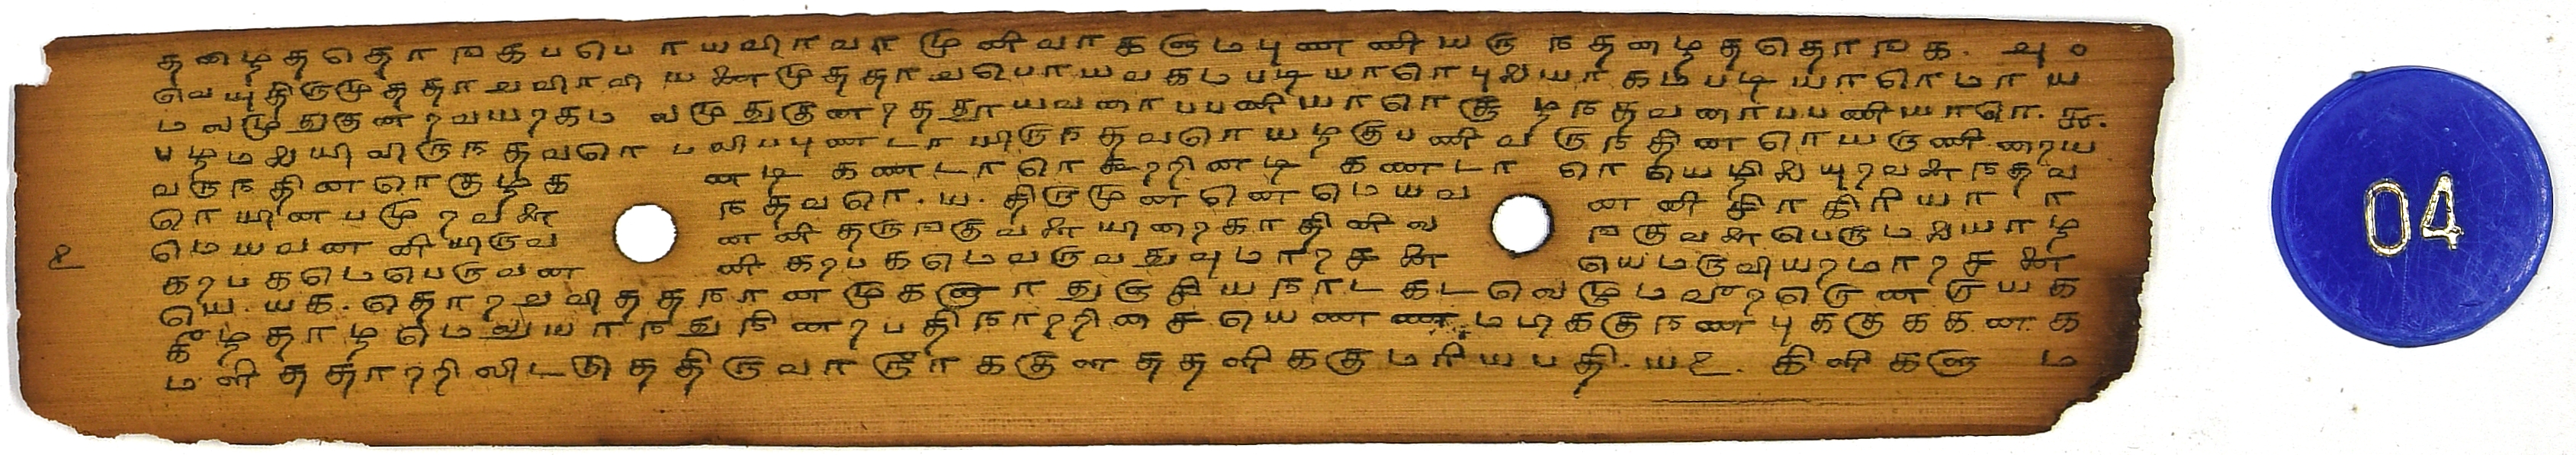 தழைததொஙகபபொயவிாவா முனிவாகளுமபுணணியரு நதழைததொஙக. அ ௦
வெயுதிருமுததாவவிாவி யனைமுததாவபொயவகமபடியாரொபுலையாகமபடியாரொமாய
மவமுதுகுனறவயரகம வமுதுகுனறததூயவனாபபணியாரொசூழநதவனாபபணியாரொ. ௯.
பழமலையிலிருநதவரொ பலிபபுணடாயிருநதவரொயழகுபணிவருநதினரொயருணினறய
வருநதினரொகுழக னடி கணடாரொகூறறினடி கணடா ரொ யெழிலையுறவடைநதவ
ரொயினபமுறவடை நதவரொ. ய. திருமுனனெமெயவ னனி சிாகிரியா ா
மெயவனனியிருவ னனி தருஙகுவடையினறகாதினிவ ஙகுவடைபெருமலையாழ
கறபகமெபெருவன னி கறபகமெவருவதுவுமாறசடை யெமருவியறமாறசடை
யெ. யக. தொறவவிததநானமுகனுாதுருகியநாடகடவெழுமவாறனெணகுயக
கீழதாழமெவுயாநதுநினறபதிநாறறிசையெணணமமிககுநணபுககுககணக
மளிததாறறிவிடஞததிருவாரூாககுளததனிககுமரியபதி. ய௨. கினிகளு ம
௨
04